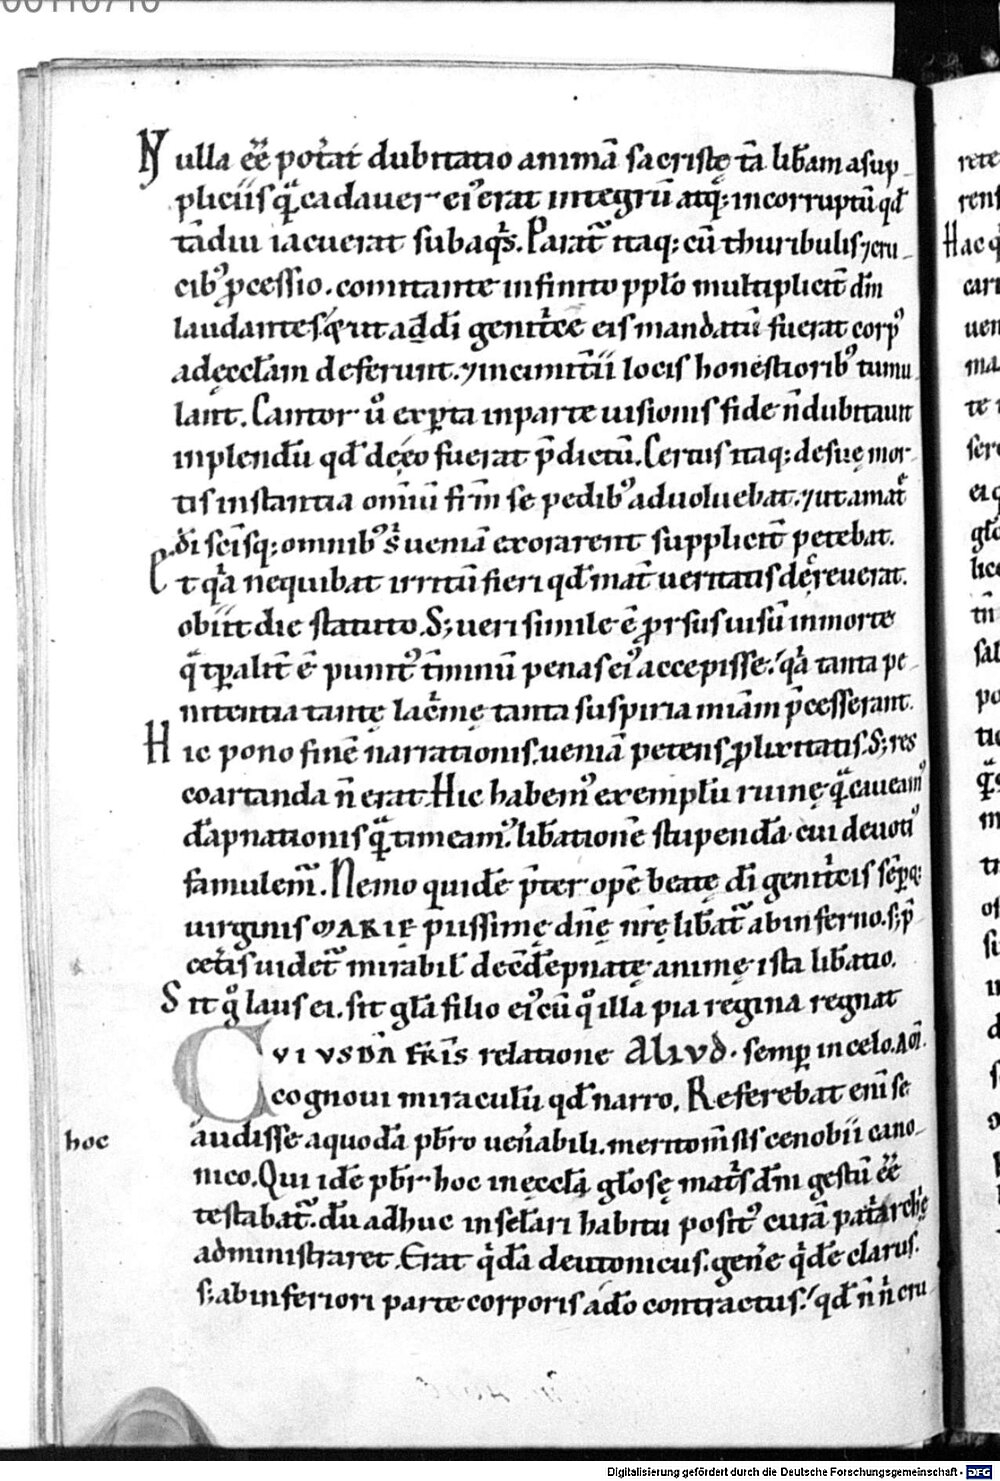 00110710
Nulla ēē pot̄at dubitatio animā sacristę tā lib̄am a sup
pliciis q̄ cadauer ei᾽ erat integrū atq; incorruptū qđ
tādiu iacuerat sub aq̄s. Parat̄ itaq; cū thuribulis ⁊ cru
cib᾽ ꝓcessio. comitante infinito pplo multiplicit̄ dn̄m
laudantes q̄ ut ad dī genit̄ce eis mandatū fuerat corp᾽
ad ęccl̄am deferunt. ⁊ in cimit̄ii locis honestiorib᾽ tumu
lant. Cantor u̾ exꝑta in parte uisionis fide n̄ dubitauit
inplendū qđ de eo fuerat p̄dictū. Certus itaq; de suę mor
tis instantia omniū fr̄m se pedib᾽ aduoluebat. ⁊ ut a mat̄
dī scīsq; omnib᾽ s̾ ueniā exorarent supplicit̄ petebat.
Et q̄a nequibat irritū fieri qđ mat̄ ueritatis dec̄reuerat.
obiit die statuto. S; ueri simile ē ꝓrsus uisū in morte
q̄ tꝑalit̄ ē punit᾽ t̄minū penas ei᾽ accepisse. q̄a tanta pe
nitentia tantę lac̄mę tanta suspiria miām p̄cesserant.
Hic pono finē narrationis. ueniā petens ꝓlixitatis. S; res
coartanda n̄ erat. Hic habem᾽ exemplū ruinę q̄ caueam᾽
dāpnationis q̄ timeam᾽. lib̄ationē stupendā. cui deuoti᾽
famulem̄. Nemo quidē p̄ter opē beatę dī genit̄cis sēꝑq;
uirginis MARIĘ piissimę dn̄ę nr̄ę lib̄at̄ ab inferno. s; p̄
cet̄is uidet̄ mirabil̄ de cōdēpnatę animę ista lib̄atio.
Sit g̊ laus ei. sit gl̄a filio ei᾽ cū q̊ illa pia regina regnat
CVIVSDĀ FR̄IS relatione ALIVD. semꝑ in celo. AM̄.
cognoui miraculū qđ narro. Referebat enī se
hoc
audisse a quodā pb̄ro uen̄abili. merito m̄sis cenobii cano
nico. Qui idē pb̄r hoc in ęccl̄a gl̄osę mat̄s dn̄i gestū ēē
testabat̄. dū adhuc in sc̄lari habitu posit᾽ curā pat̄archę
administraret. Erat q̄dā deutonicus. gen̄e q̄dē clarus.
s; ab inferiori parte corporis adeo contractus. qđ n̄ n̄ cru
Digitalisierung gefördert durch die Deutsche Forschungsgemeinschaft - DFG